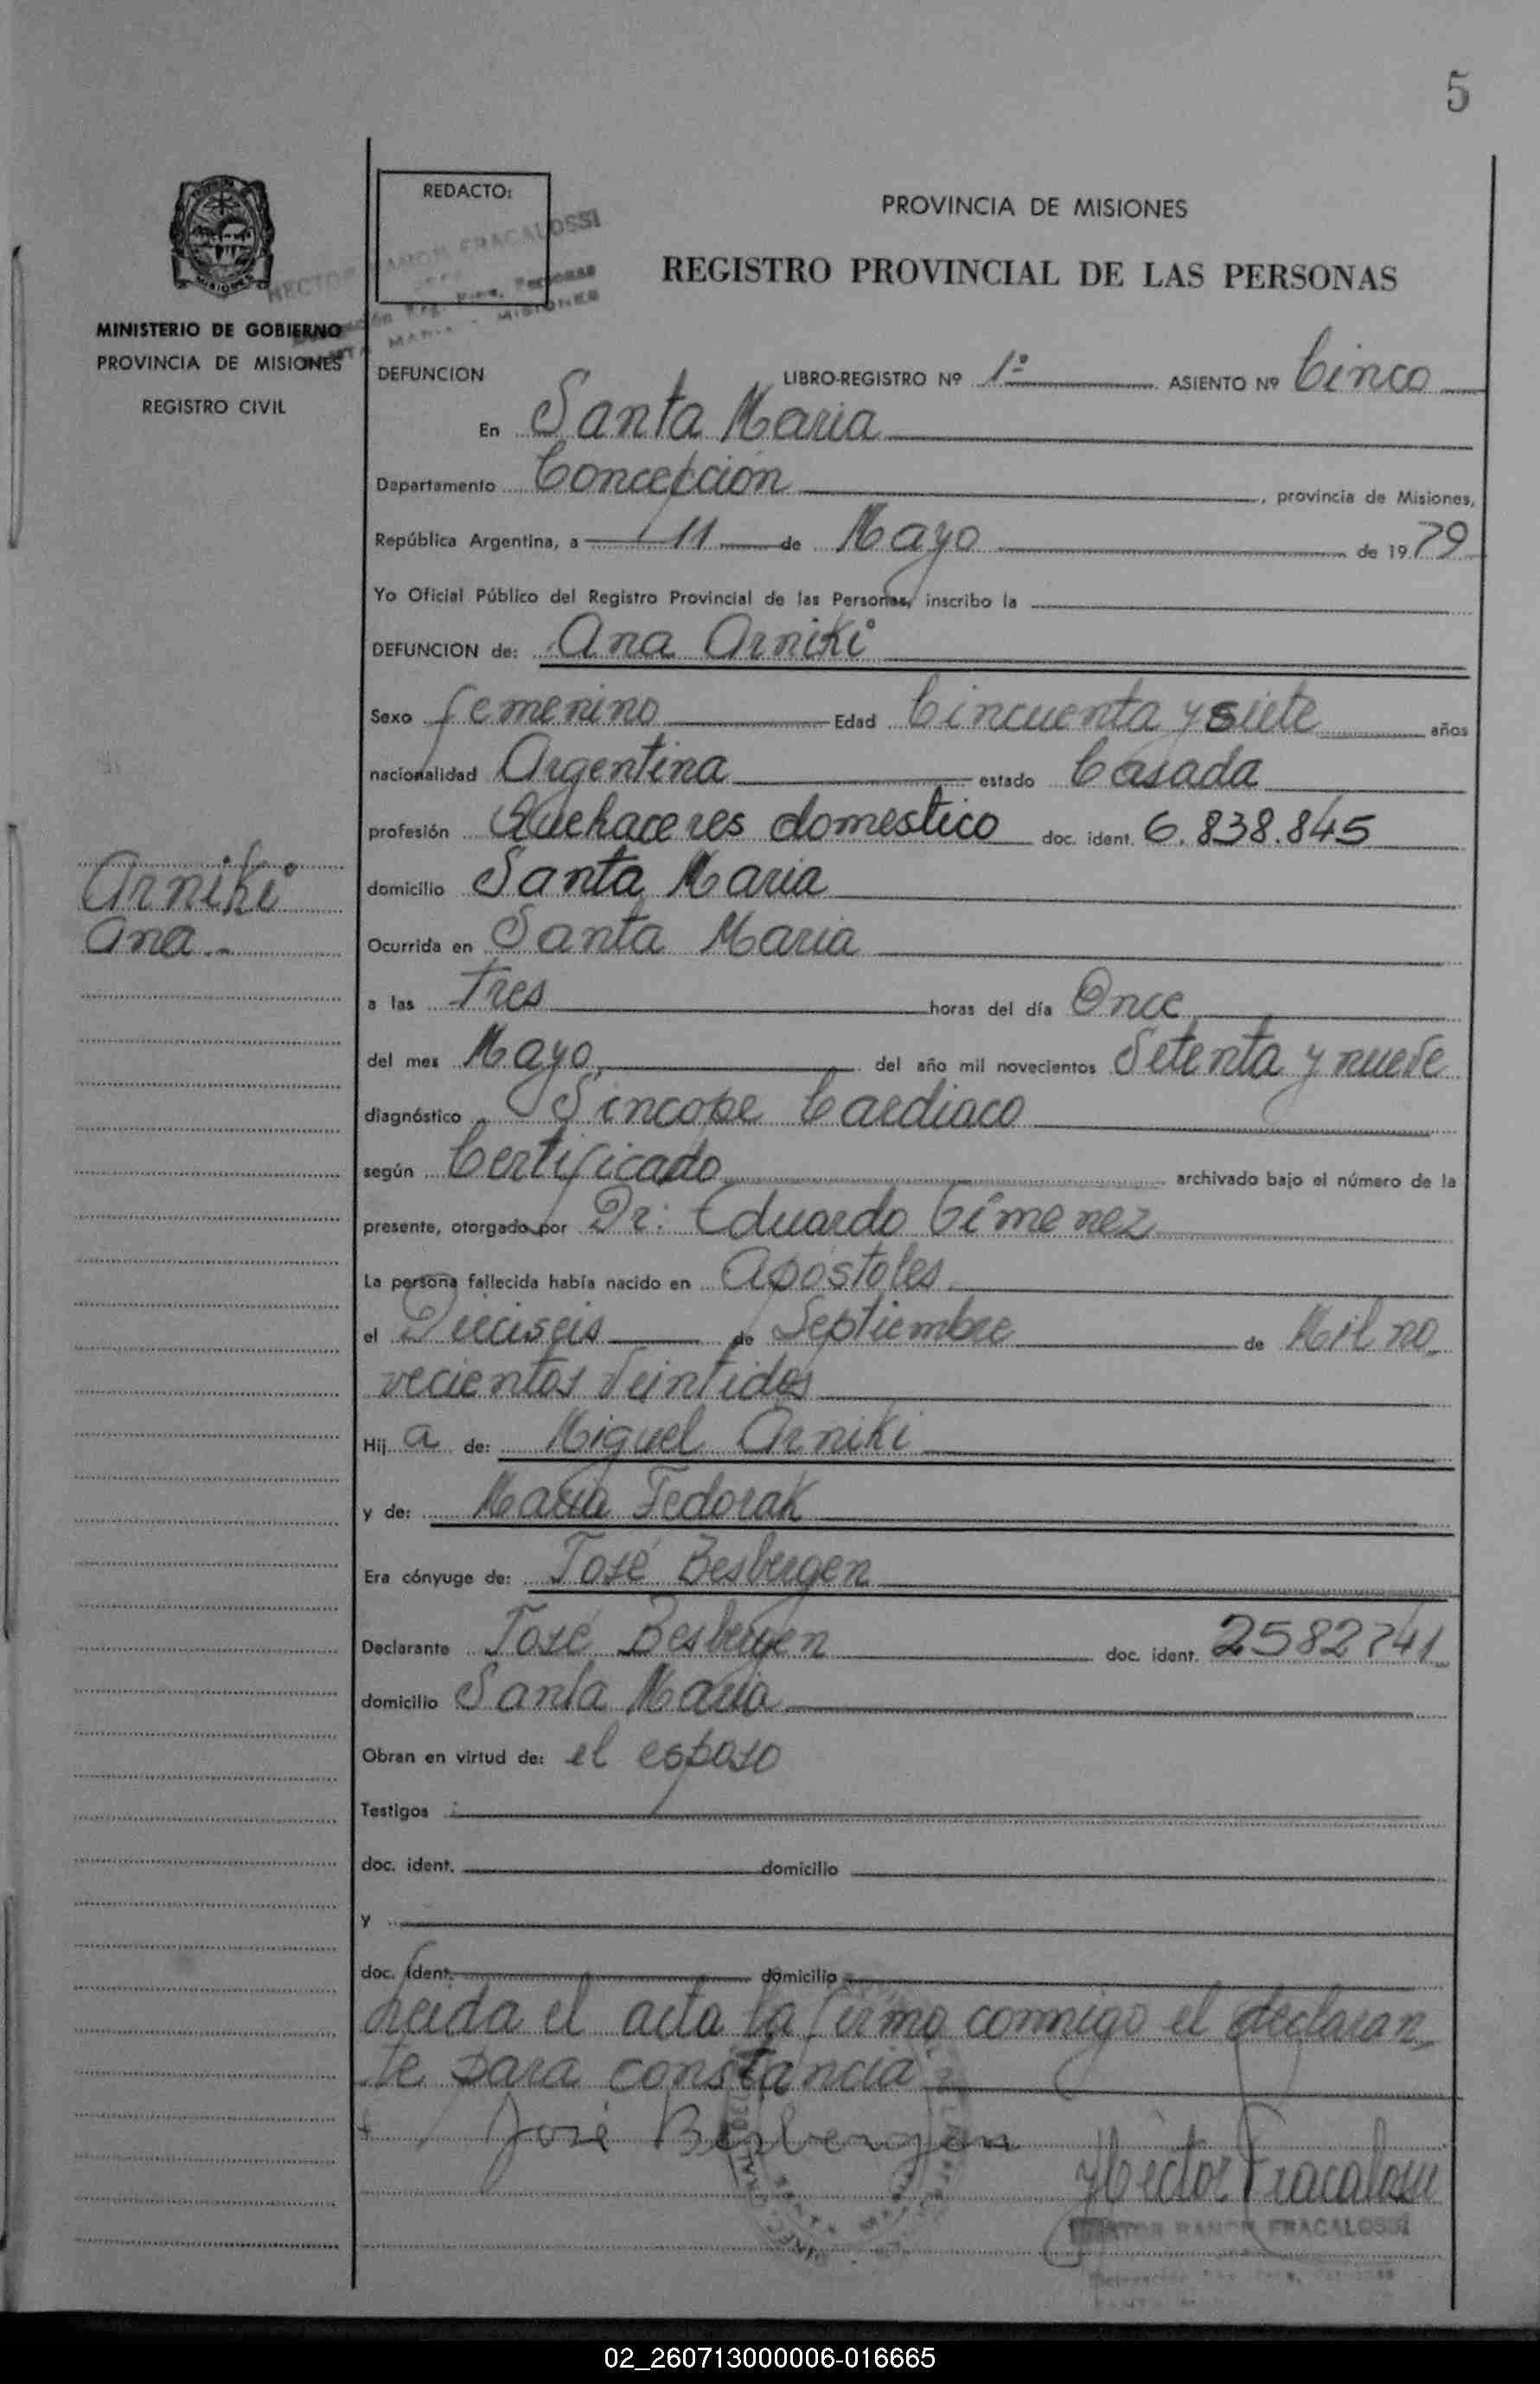 5
REDACTO:
HECTOR RAMON FRACALOSSI
PROVINCIA DE MISIONES
REGISTRO PROVINCIAL DE LAS PERSONAS
MISIONES
MINISTERIO DE GOBIERNO
PROVINCIA DE MISIONES
REGISTRO CIVIL
DEFUNCION LIBRO-REGISTRO Nº 1º ASIENTO Nº Cinco
En Santa Maria
Departamento Concepción, provincia de Misiones,
República Argentina, a 11 de Mayo de 1979
Yo Oficial Público del Registro Provincial de las Personas, inscribo la
DEFUNCION de: Ana Arniki
Sexo femenino Edad Cincuenta y siete años
nacionalidad Argentina estado Casada
profesión Quehaceres domestico doc. ident. 6.838.845
Arniki
Ana.-
domicilio Santa Maria
Ocurrida en Santa Maria
a las Tres horas del día Once
del mes Mayo, del año mil novecientos Setenta y nueve
diagnóstico Sincope Cardiaco
según Certificado archivado bajo el número de la
presente, otorgado por Dr: Eduardo Gimenez
La persona fallecida había nacido en Apóstoles
el Dieciseis de Septiembre de Mil no
vecientos Veintidos
Hij a de: Miguel Arniki
y de: Maria Fedorak
Era cónyuge de: José Besbergen
Declarante José Besbergen doc. ident. 2582741
domicilio Santa Maria
Obran en virtud de: el esposo
Testigos
doc. ident. domicilio
y
doc. ident. domicilio
Leida el acta la firma conmigo el declaran
te para constancia
José Besbergen
Hector Fracalossi
HECTOR RAMON FRACALOSSI
02_260713000006-016665